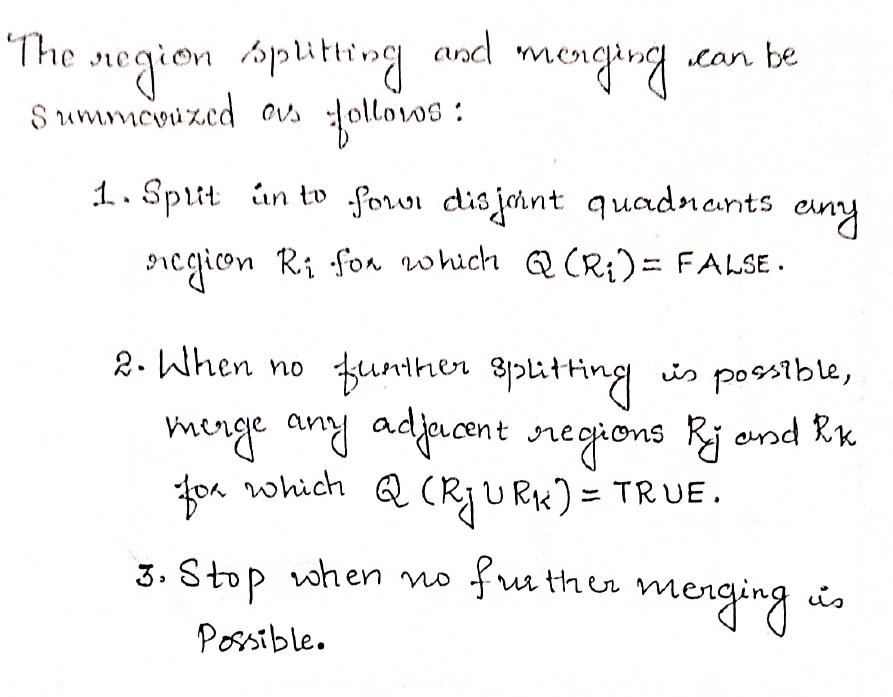 The region splitting and merging can be
summarized as follows:
1. Split into four disjoint quadrants any
region Ri for which Q (Ri) = FALSE.
2. When no further splitting is possible,
merge any adjacent regions Rj and Rk
for which Q (Rj U Rk) = TRUE.
3. Stop when no further merging is
Possible.